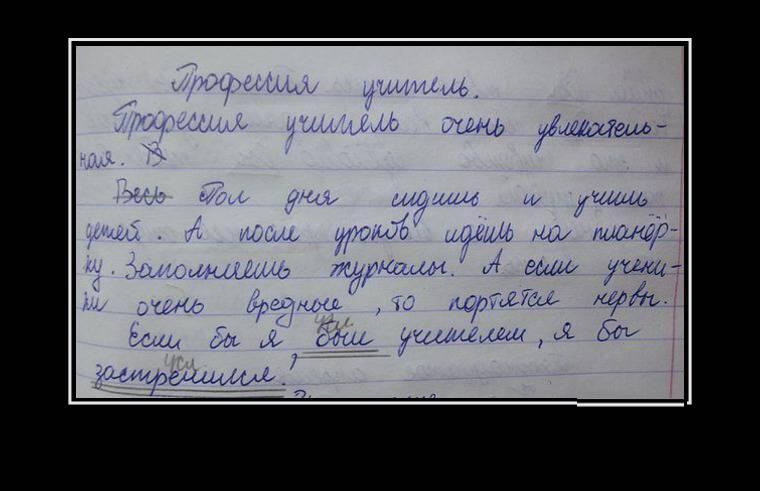 Профессия учитель.
Профессия учитель очень увлекатель-
ная. В
Весь Пол дня сидишь и учишь
детей. А после уроков идёшь на планёр-
ку. Заполняешь журналы. А если учени-
ки очень вредные, то портятся нервы.
Если бы я был учителем, я бы
усл
застрелился!